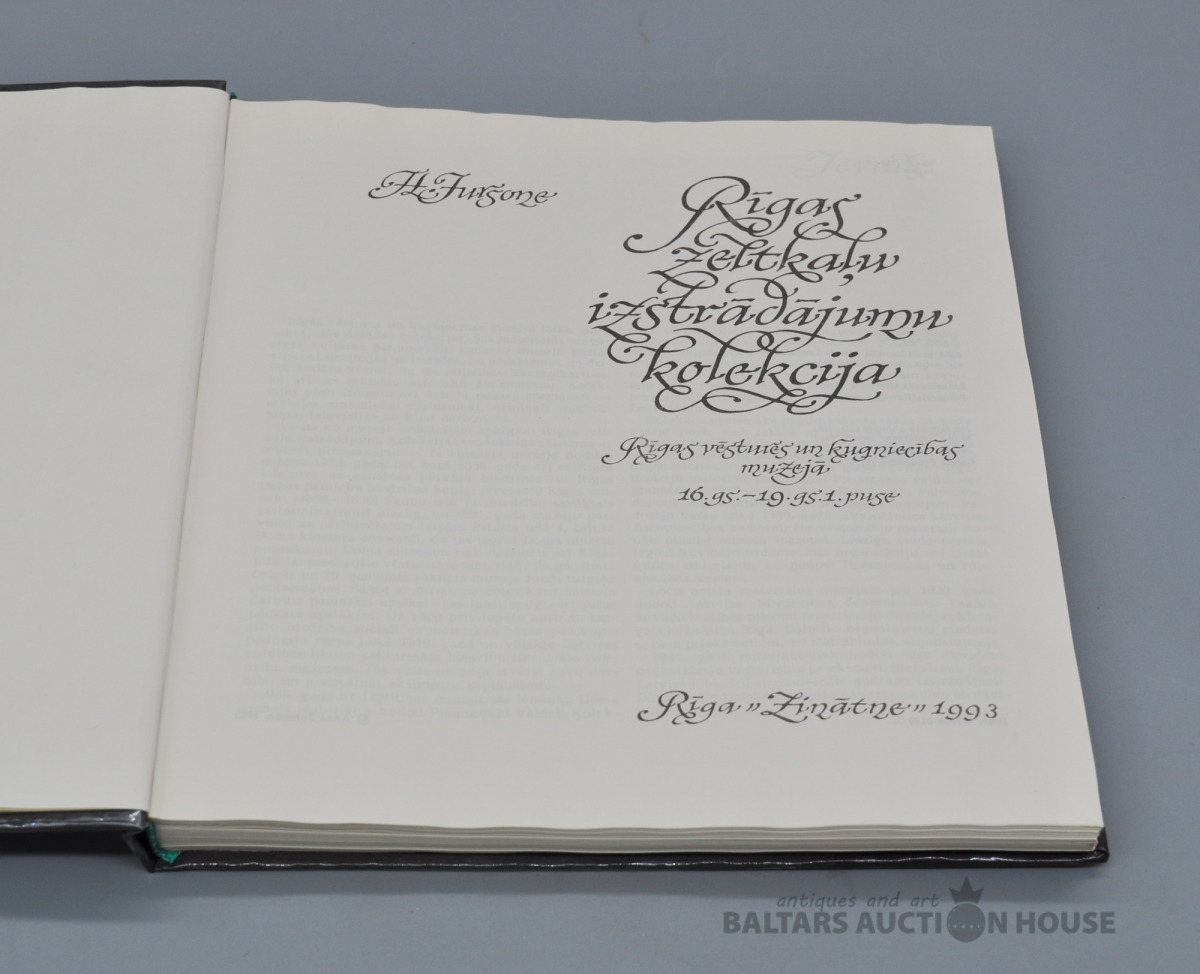 A. Juršone
Rīgas
zeltkaļu
izstrādājumu
kolekcija
Rīgas vēstures un kuģniecības
muzejā
16. gs. – 19. gs. 1. puse
Rīga „Zinātne” 1993
antiques and art
BALTARS AUCTION HOUSE